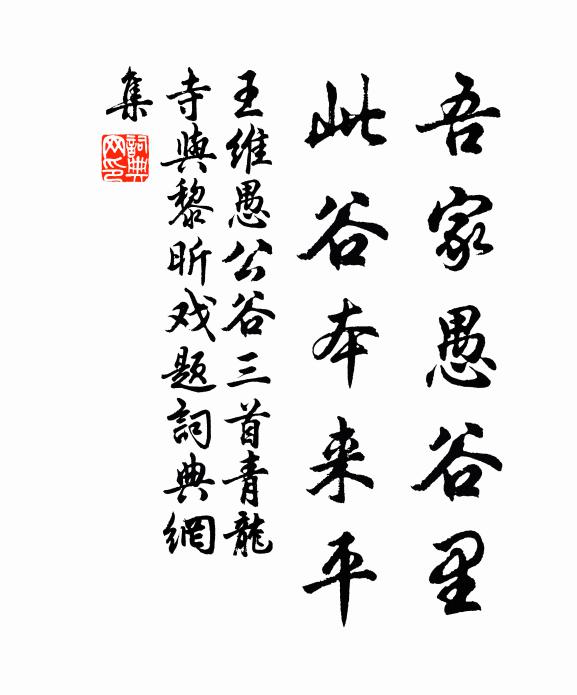 吾家愚谷里
此谷本来平
王维愚公谷三首青龍
寺與黎昕戏题詞典網
集
詞典網印